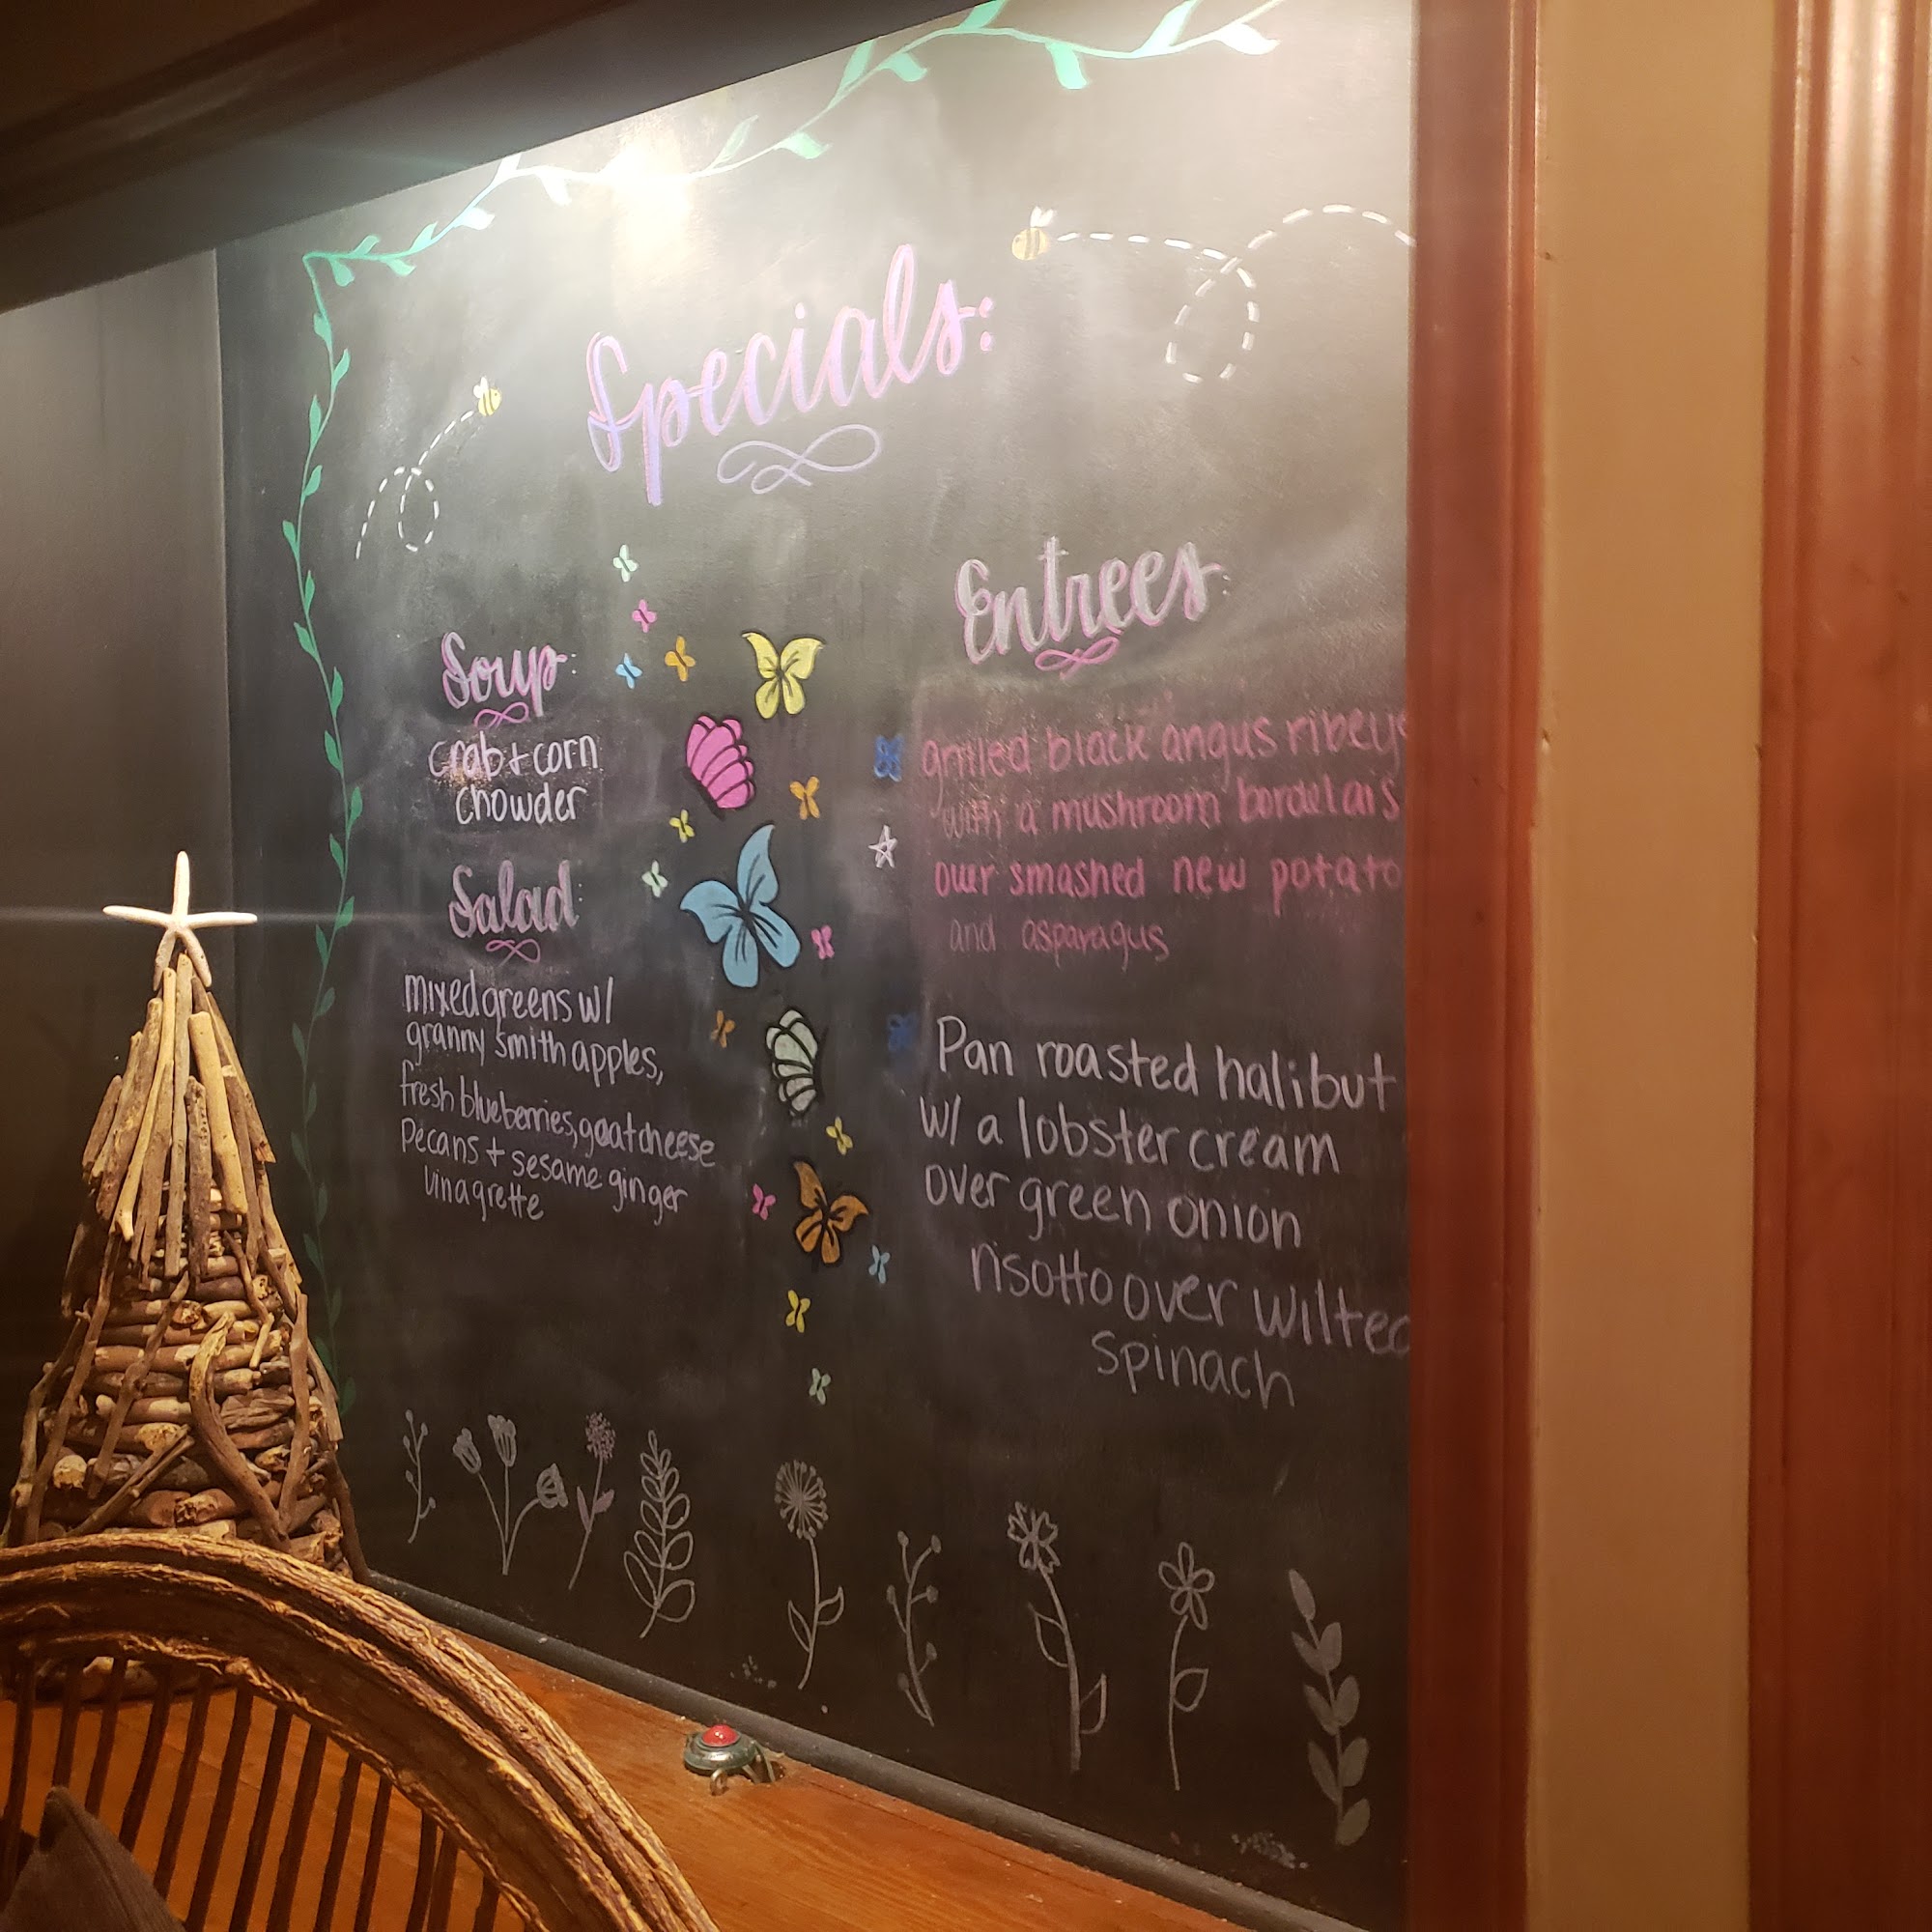 Specials:
Soup:
crab + corn
chowder
Salad:
mixed greens w/
granny smith apples,
fresh blueberries, goat cheese
pecans + sesame ginger
vinagrette
Entrees:
grilled black angus ribeye
with a mushroom bordelais
our smashed new potato
and asparagus
Pan roasted halibut
w/ a lobster cream
over green onion
risotto over wilted
spinach